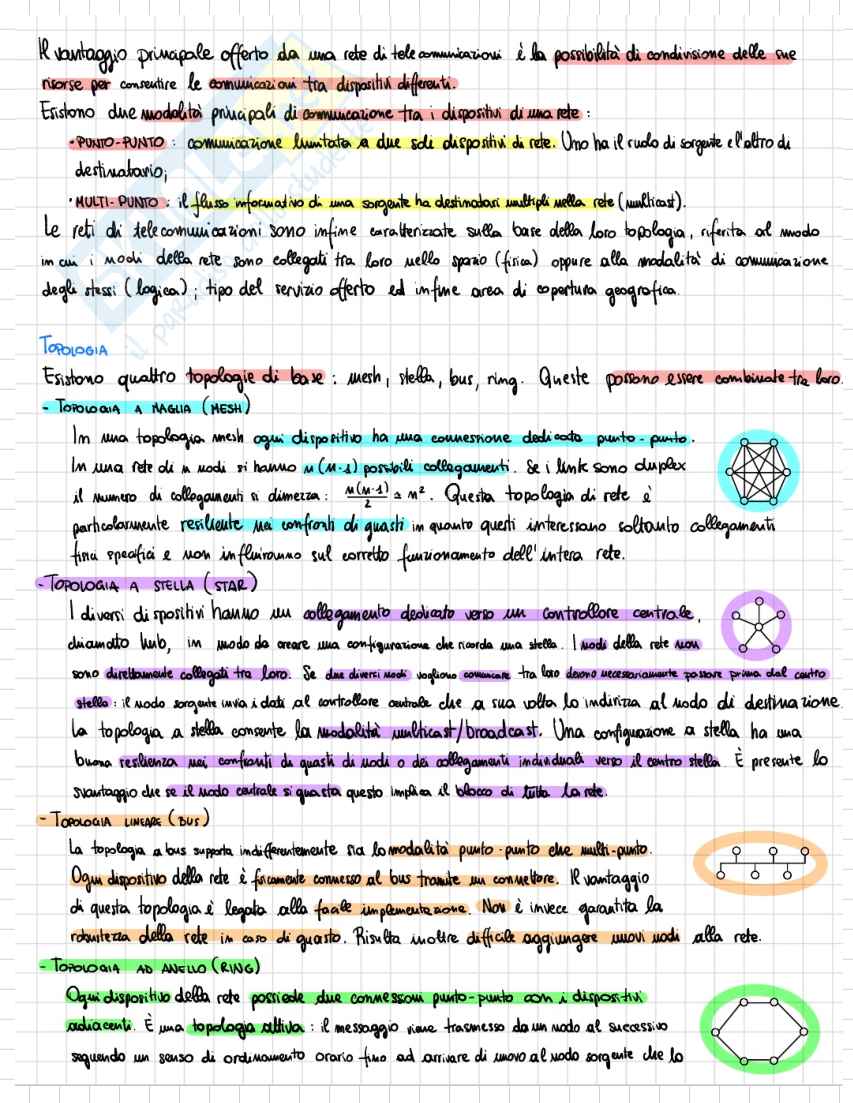 Il vantaggio principale offerto da una rete di telecomunicazioni è la possibilità di condivisione delle sue
risorse per consentire le comunicazioni tra dispositivi differenti.
Esistono due modalità principali di comunicazione tra i dispositivi di una rete :
• PUNTO-PUNTO : comunicazione limitata a due soli dispositivi di rete. Uno ha il ruolo di sorgente e l'altro di
destinatario;
• MULTI-PUNTO : il flusso informativo di una sorgente ha destinatari multipli nella rete (multicast).
Le reti di telecomunicazioni sono infine caratterizzate sulla base della loro topologia, riferita al modo
in cui i nodi della rete sono collegati tra loro nello spazio (fisica) oppure alla modalità di comunicazione
degli stessi (logica) ; tipo del servizio offerto ed infine area di copertura geografica.
TOPOLOGIA
Esistono quattro topologie di base : mesh, stella, bus, ring. Queste possono essere combinate tra loro.
- TOPOLOGIA A MAGLIA (MESH)
In una topologia mesh ogni dispositivo ha una connessione dedicata punto-punto.
In una rete di n nodi si hanno n(n-1) possibili collegamenti. Se i link sono duplex
il numero di collegamenti si dimezza : n(n-1)/2 ≃ n². Questa topologia di rete è
particolarmente resiliente nei confronti di guasti in quanto questi interessano soltanto collegamenti
fisici specifici e non influiranno sul corretto funzionamento dell'intera rete.
- TOPOLOGIA A STELLA (STAR)
I diversi dispositivi hanno un collegamento dedicato verso un controllore centrale,
chiamato hub, in modo da creare una configurazione che ricorda una stella. I nodi della rete non
sono direttamente collegati tra loro. Se due diversi nodi vogliono comunicare tra loro devono necessariamente passare prima dal centro
stella : il nodo sorgente invia i dati al controllore centrale che a sua volta lo indirizza al nodo di destinazione.
La topologia a stella consente la modalità multicast/broadcast. Una configurazione a stella ha una
buona resilienza nei confronti di guasti di nodi o dei collegamenti individuali verso il centro stella. È presente lo
svantaggio che se il nodo centrale si guasta questo implica il blocco di tutta la rete.
- TOPOLOGIA LINEARE (BUS)
La topologia a bus supporta indifferentemente sia la modalità punto-punto che multi-punto.
Ogni dispositivo della rete è fisicamente connesso al bus tramite un connettore. Il vantaggio
di questa topologia è legata alla facile implementazione. Non è invece garantita la
robustezza della rete in caso di guasto. Risulta inoltre difficile aggiungere nuovi nodi alla rete.
- TOPOLOGIA AD ANELLO (RING)
Ogni dispositivo della rete possiede due connessioni punto-punto con i dispositivi
adiacenti. È una topologia attiva : il messaggio viene trasmesso da un nodo al successivo
seguendo un senso di ordinamento orario fino ad arrivare di nuovo al nodo sorgente che lo